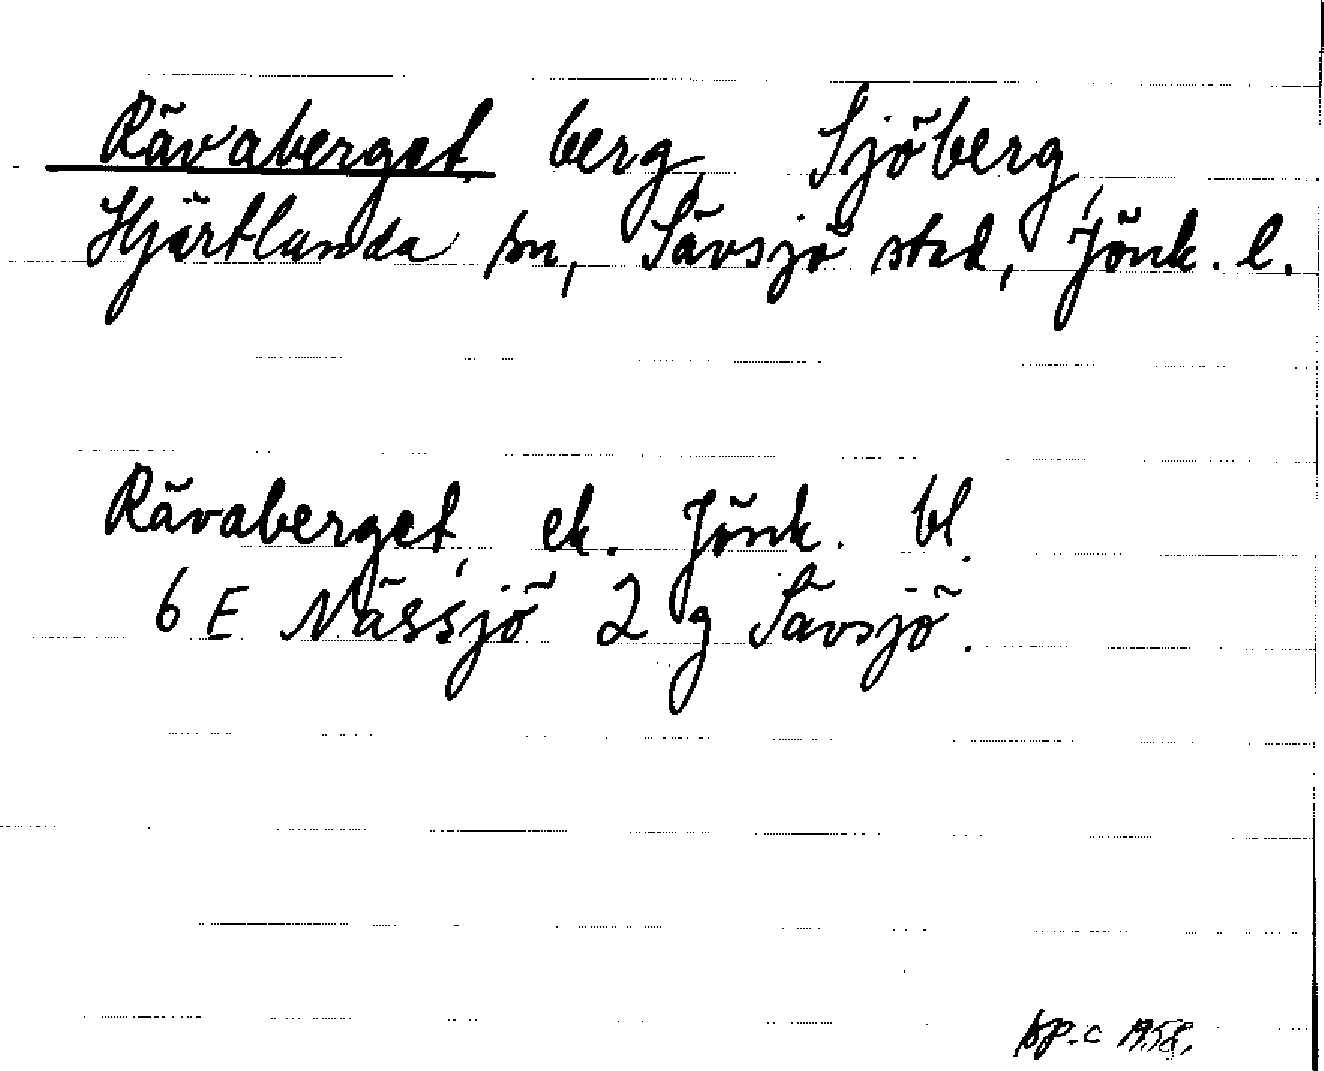 Rävaberget berg, Sjöberg,
Hjärtlanda sn, Sävsjö stad, Jönk. l.
Rävaberget, ek. Jönk. bl.
6 E Nässjö 2 g Sävsjö.
sp. c 1958.